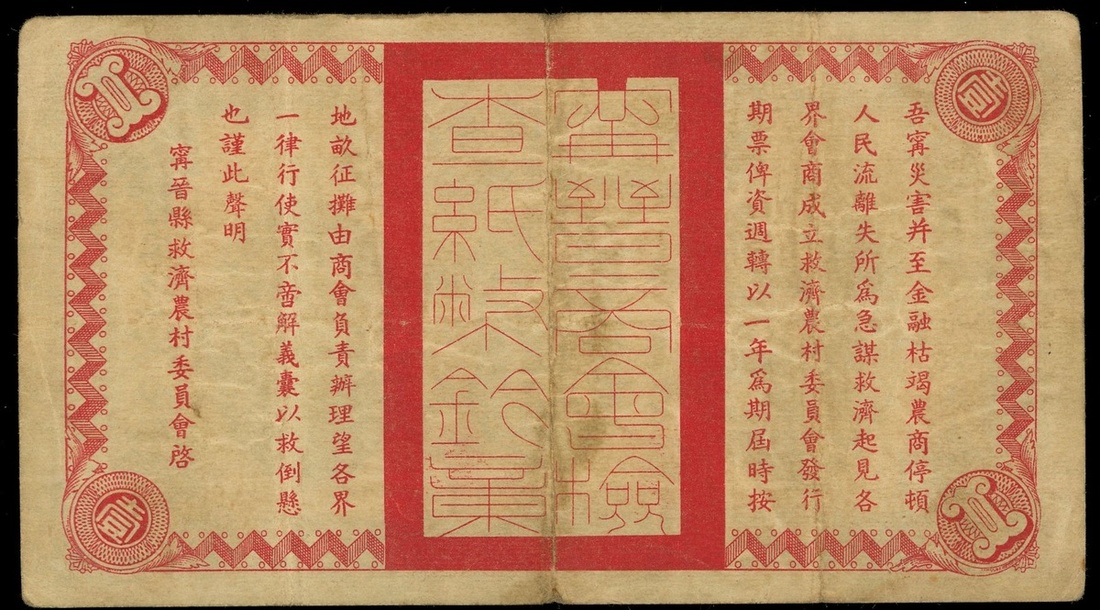 吾甯災害并至金融枯竭農商停頓
人民流離失所為急謀救濟起見各
界會商成立救濟農村委員會發行
期票俾資週轉以一年為期屆時按
甯晉商會檢
查紙幣鈔票
地畝征攤由商會負責辦理望各界
一律行使實不啻解義囊以救倒懸
也謹此聲明
甯晉縣救濟農村委員會啓